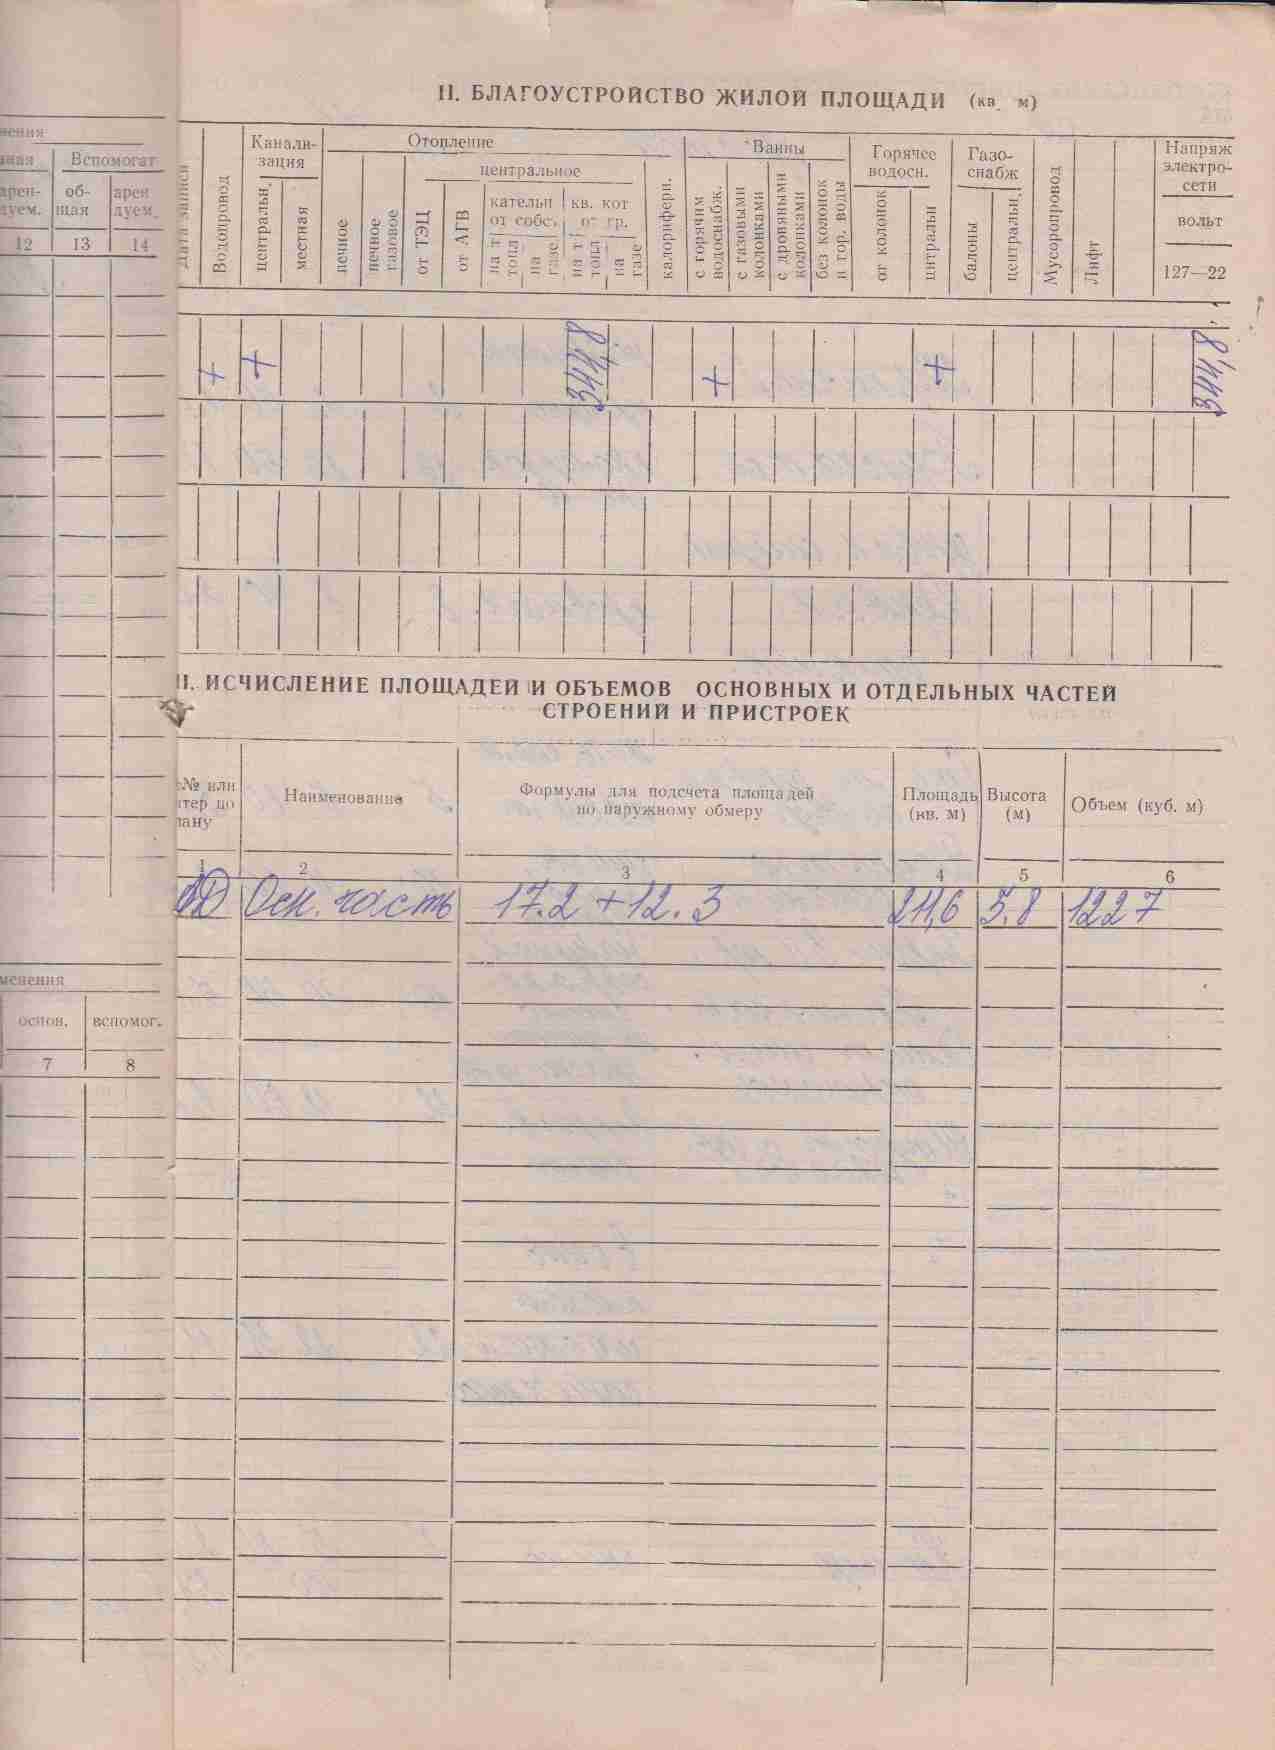 II. БЛАГОУСТРОЙСТВО ЖИЛОЙ ПЛОЩАДИ (кв. м)
Вспомогат
арен-
дуем.
об-
щая
арен
дуем.
12 13 14
Дата записи
Водопровод
Канали-
зация
центральн.
местная
Отопление
печное
печное газовое
центральное
от ТЭЦ
от АГВ
на т
топл
на газе
кв. кот
от гр.
на т
топл
на газе
калорифери.
Ванны
с горячим водоснабж.
с газовыми колонками
с дровяными колонками
без колонок и гор. воды
Горячее
водосн.
от колонок
цнтральн
Газо-
снабж
балоны
центральн.
Мусоропровод
Лифт
Напряж
электро-
сети
вольт
127—22
+ + 344,8 + + 344,8
II. ИСЧИСЛЕНИЕ ПЛОЩАДЕЙ И ОБЪЕМОВ ОСНОВНЫХ И ОТДЕЛЬНЫХ ЧАСТЕЙ
СТРОЕНИЙ И ПРИСТРОЕК
№ или
тер по
лану
Наименование
Формулы для подсчета площадей
по наружному обмеру
Площадь
(кв. м)
Высота
(м)
Объем (куб. м)
1 2 3 4 5 6
Осн. часть 17.2 + 12.3 211,6 5.8 1227
менения
основ. вспомог.
7 8